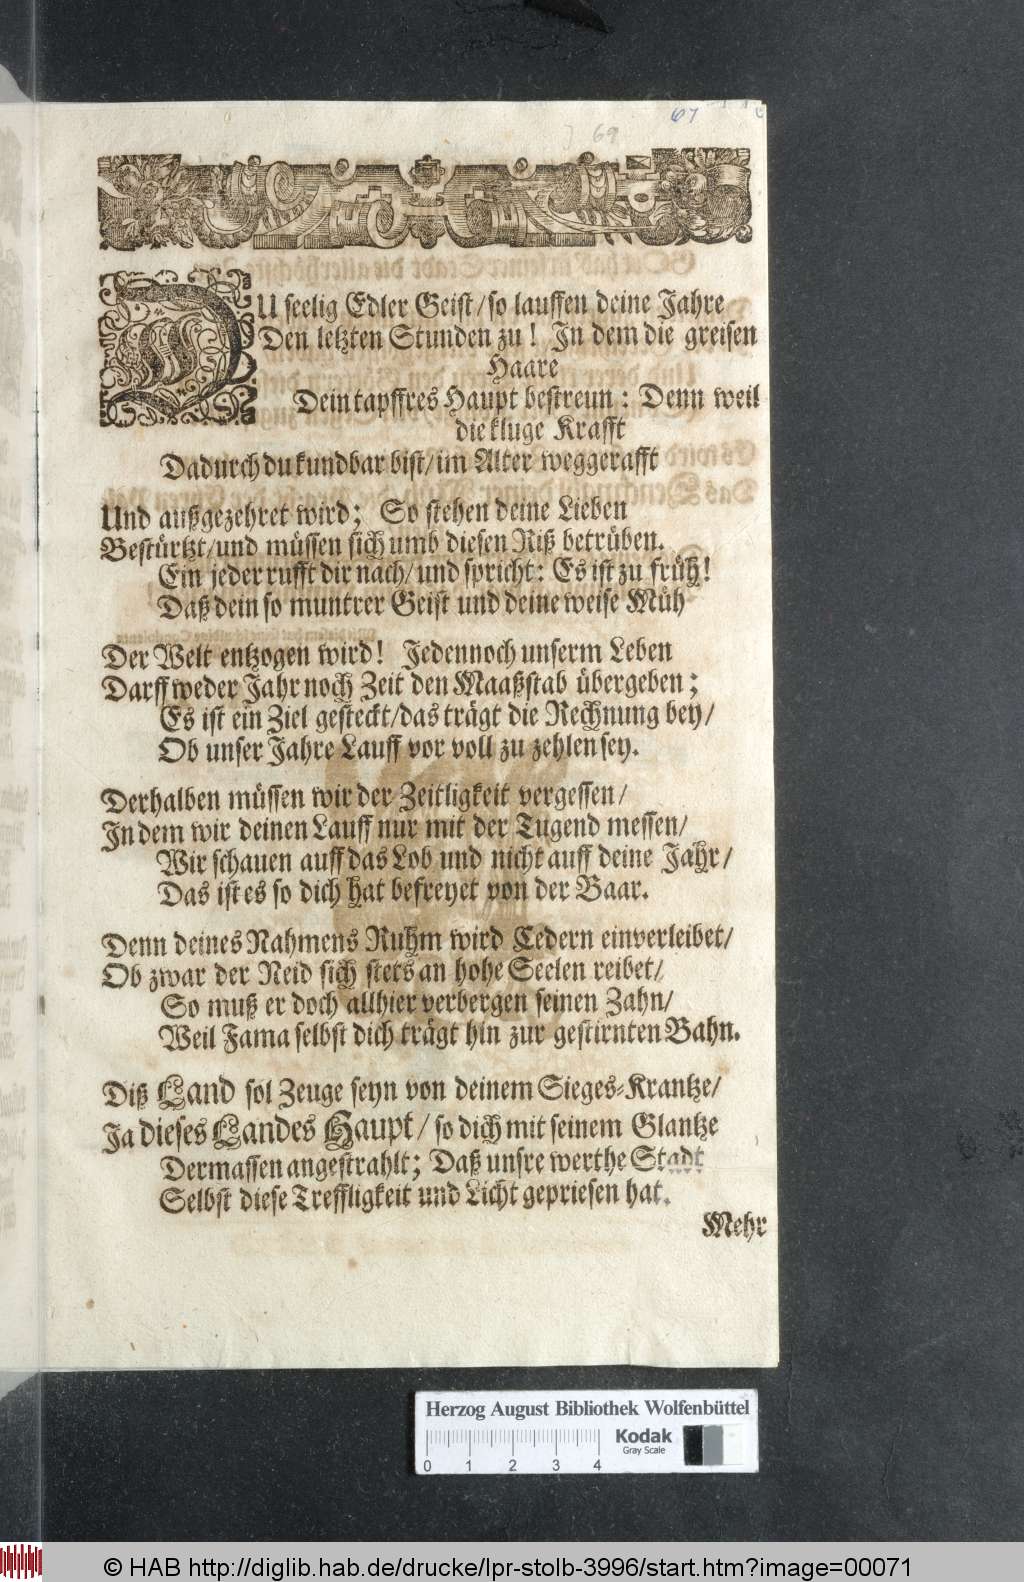 67
69
DU seelig Edler Geist/so lauffen deine Jahre
Den letzten Stunden zu! In dem die greisen
Haare
Dein tapffres Haupt bestreun: Denn weil
die kluge Krafft
Dadurch du kundbar bist/im Alter weggerafft
Und außgezehret wird; So stehen deine Lieben
Bestürtzt/und müssen sich umb diesen Riß betrüben.
Ein jeder rufft dir nach/und spricht: Es ist zu früh!
Daß dein so muntrer Geist und deine weise Müh
Der Welt entzogen wird! Jedennoch unserm Leben
Darff weder Jahr noch Zeit den Maaßstab übergeben;
Es ist ein Ziel gesteckt/das trägt die Rechnung bey/
Ob unser Jahre Lauff vor voll zu zehlen sey.
Derhalben müssen wir der Zeitligkeit vergessen/
In dem wir deinen Lauff nur mit der Tugend messen/
Wir schauen auff das Lob und nicht auff deine Jahr/
Das ist es so dich hat befreyet von der Baar.
Denn deines Nahmens Ruhm wird Cedern einverleibet/
Ob zwar der Neid sich stets an hohe Seelen reibet/
So muß er doch allhier verbergen seinen Zahn/
Weil Fama selbst dich trägt hin zur gestirnten Bahn.
Diß Land sol Zeuge seyn von deinem Sieges-Krantze/
Ja dieses Landes Haupt/so dich mit seinem Glantze
Dermassen angestrahlt; Daß unsre werthe Stadt
Selbst diese Treffligkeit und Licht gepriesen hat.
Mehr
Herzog August Bibliothek Wolfenbüttel
Kodak
Gray Scale
0 1 2 3 4
© HAB http://diglib.hab.de/drucke/lpr-stolb-3996/start.htm?image=00071